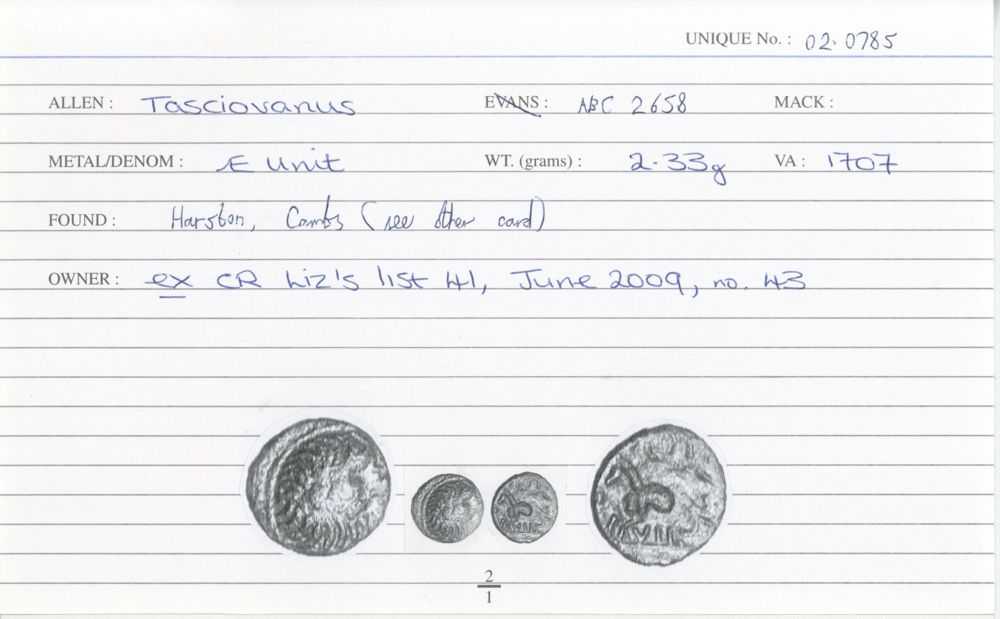 UNIQUE No. : 02.0785
ALLEN : Tasciovanus EVANS : ABC 2658 MACK :
METAL/DENOM : Æ Unit WT. (grams) : 2.33g VA : 1707
FOUND : Harston, Cambs (see other card)
OWNER : ex CR Liz's list 41, June 2009, no. 43
2
1